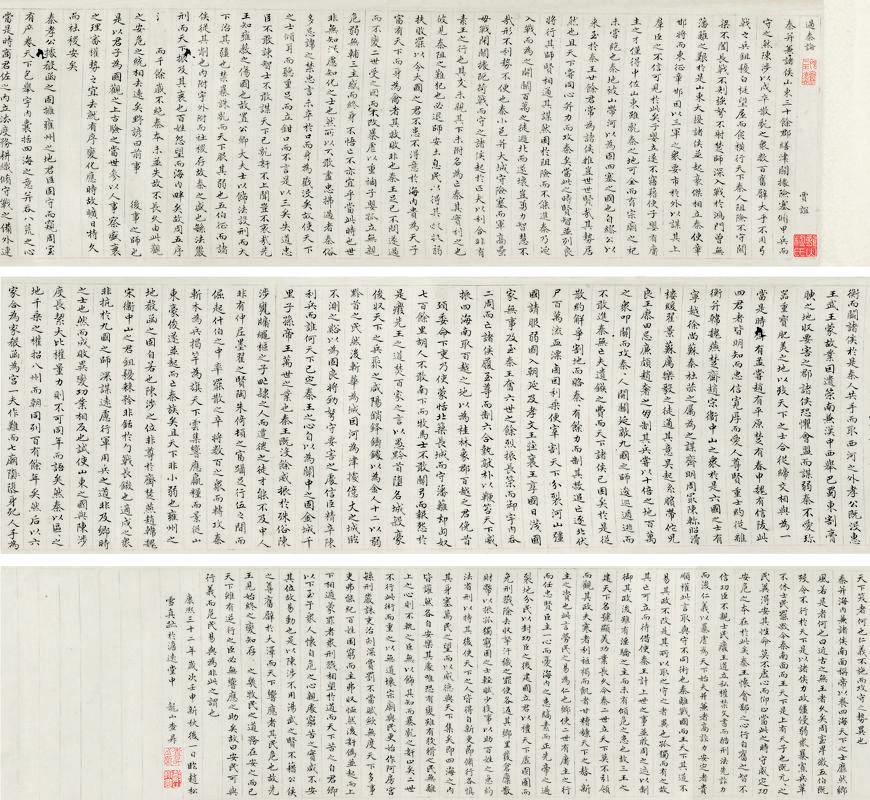 過秦論
賈誼
秦并兼諸侯山東三十餘郡繕津關據險塞脩甲兵而
守之然陳涉以戍卒散亂之衆數百奮臂大呼不用弓
戟之兵鉏耰白梃望屋而食橫行天下秦人阻險不守關
梁不闔長戟不刺彊弩不射楚師深入戰於鴻門曾無
藩籬之艱於是山東大擾諸侯並起豪傑相立秦使章
邯將而東征章邯因以三軍之衆要市於外以謀其上
羣臣之不信可見於此矣子嬰立遂不寤藉使子嬰有庸
主之材僅得中佐山東雖亂秦之地可全而有宗廟之祀
未當絕也秦地被山帶河以為固四塞之國也自繆公以
來至於秦王廿餘君常為諸侯雄豈世世賢哉其勢居
然也且天下嘗同心并力而攻秦矣當此之時賢智並列良
將行其師賢相通其謀然困於阻險而不能進秦乃延
入戰而為之開關百萬之徒逃北而遂壞豈勇力智慧不
足哉形不利勢不便也秦小邑并大城守險塞而軍高壘
毋戰閉關據阨荷戟而守之諸侯起於匹夫以利合非有
素王之行也其交未親其下未附名為亡秦其實利之也
彼見秦阻之難犯也必退師安土息民以待其敝收弱
扶罷以令大國之君不患不得意於海內貴為天子
富有天下而身為禽者其救敗非也秦王足己不問遂過
而不變二世受之因而不改暴虐以重禍子嬰孤立無親
危弱無輔三主惑而終身不悟亡不亦宜乎當此時也世
非無深慮知化之士也然所以不敢盡忠拂過者秦俗
多忌諱之禁忠言未卒於口而身為戮沒矣故使天下
之士傾耳而聽重足而立鉗口而不言是以三主失道忠
臣不敢諫智士不敢謀天下已亂姦不上聞豈不哀哉先
王知雍蔽之傷國也故置公卿大夫士以飾法設刑而天
下治其彊也禁暴誅亂而天下服其弱也五伯征而諸
侯從其削也內守外附而社稷存故秦之盛也繁法嚴
刑而天下振及其衰也百姓怨望而海內畔矣故周五序
而千餘歲不絕秦本末並失故不長久由此觀
之安危之統相去遠矣野諺曰前事 後事之師也
是以君子為國觀之上古驗之當世參以人事察盛衰
之理審權勢之宜去就有序變化應時故曠日持久
而社稷安矣
秦孝公據殽函之固擁雍州之地君臣固守而窺周室
有席卷天下包舉宇內囊括四海之意并吞八荒之心
當是時商君佐之內立法度務耕織脩守戰之備外連
衡而鬬諸侯於是秦人拱手而取西河之外孝公既沒惠
王武王蒙故業因遺策南兼漢中西舉巴蜀東割膏
腴之地收要害之郡諸侯恐懼會盟而謀弱秦不愛珍
器重寶肥美之地以致天下之士合從締交相與為一
當是時齊有孟嘗趙有平原楚有春申魏有信陵此
四君者皆明知而忠信寬厚而愛人尊賢重士約從離
衡并韓魏燕楚齊趙宋衛中山之衆於是六國之士有
寧越徐尚蘇秦杜赫之屬為之謀齊明周冣陳軫昭滑
樓緩翟景蘇厲樂毅之徒通其意吳起孫臏帶佗兒
良王廖田忌廉頗趙奢之朋制其兵嘗以十倍之地百萬
之衆叩關而攻秦秦人開關延敵九國之師逡巡遁逃而
不敢進秦無亡矢遺鏃之費而天下諸侯已困矣於是從
散約解爭割地而賂秦秦有餘力而制其敝追亡逐北伏
尸百萬流血漂鹵因利乘便宰割天下分裂河山彊
國請服弱國入朝延及孝文王莊襄王享國日淺國
家無事及至秦王奮六世之餘烈振長策而御宇內吞
二周而亡諸侯履至尊而制六合執敲朴以鞭笞天下威
振四海南取百越之地以為桂林象郡百越之君俛首
頸委命下吏乃使蒙恬北築長城而守藩籬却匈奴
七百餘里胡人不敢南下而牧馬士不敢關弓而報怨於
是廢先王之道焚百家之言以愚黔首墮名城殺豪
俊收天下之兵聚之咸陽銷鋒鑄鐻以為金人十二以弱
黔首之民然後斬華為城因河為津據億丈之城臨
不測之谿以為固良將勁弩守要害之處信臣精卒陳
利兵而誰何天下已定秦王之心自以為關中之固金城千
里子孫帝王萬世之業也秦王既沒餘威振於殊俗陳
涉甕牖繩樞之子甿隸之人而遷徙之徒才能不及中人
非有仲尼墨翟之賢陶朱猗頓之富躡足行伍之間而
倔起什伯之中率罷散之卒將數百之衆而轉攻秦
斬木為兵揭竿為旗天下雲集響應贏糧而景從山
東豪俊遂並起而亡秦族矣且天下非小弱也雍州之
地殽函之固自若也陳涉之位非尊於齊楚燕趙韓魏
宋衛中山之君鉏耰棘矜非銛於句戟長鎩也適戍之衆
非抗於九國之師深謀遠慮行軍用兵之道非及鄉時
之士也然而成敗異變功業相反也試使山東之國與陳涉
度長絜大比權量力則不可同年而語矣然秦以區區之
地千乘之權招八州而朝同列百有餘年矣然後以六
合為家殽函為宮一夫作難而七廟墮身死人手為
天下笑者何也仁義不施而攻守之勢異也
秦并海內兼諸侯南面稱帝以養四海天下之士斐然鄉
風若是者何也曰近古之無王者久矣周室卑微五伯既
歿令不行於天下是以諸侯力政彊侵弱衆暴寡兵革
不休士民罷敝今秦南面而王天下是上有天子也既元元之
民冀得安其性命莫不虛心而仰上當此之時守威定功
安危之本在於此矣秦王懷貪鄙之心行自奮之智不
信功臣不親士民廢王道立私權禁文書而酷刑法先詐力
而後仁義以暴虐為天下始夫并兼者高詐力安定者貴
順權此言取與守不同術也秦離戰國而王天下其道不
易其政不改是其所以取之守之者異也孤獨而有之故
其亡可立而待借使秦王計上世之事並殷周之迹以制
御其政後雖有淫驕之主而未有傾危之患也故三王之
建天下名號顯美功業長久今秦二世立天下莫不引領
而觀其政夫寒者利裋褐而飢者甘糟糠天下之嗸嗸新
主之資也此言勞民之易為仁也鄉使二世有庸主之行
而任忠賢臣主一心而憂海內之患縞素而正先帝之過
裂地分民以封功臣之後建國立君以禮天下虛囹圄而
免刑戮除去收孥汙穢之罪使各返其鄉里發倉廩散
財幣以振孤獨窮困之士輕賦少事以佐百姓之急約
法省刑以持其後使天下之人皆得自新更節修行各慎
其身塞萬民之望而以威德與天下天下集矣即四海之內
皆讙然各自安樂其處唯恐有變雖有狡猾之民無離
上之心則不軌之臣無以飾其智而暴亂之姦止矣二世
不行此術而重之以無道壞宗廟與民更始作阿房宮
繁刑嚴誅吏治刻深賞罰不當賦斂無度天下多事
吏弗能紀百姓困窮而主弗收恤然後姦偽並起而上
下相遁蒙罪者衆刑戮相望於道而天下苦之自君卿
以下至于衆人懷自危之心親處窮苦之實咸不安
其位故易動也是以陳涉不用湯武之賢不藉公侯
之尊奮臂於大澤而天下響應者其民危也故先
王見始終之變知存亡之機是以牧民之道務在安之而已
天下雖有逆行之臣必無響應之助矣故曰安民可與
行義而危民易與為非此之謂也
康熙三十一年歲次壬申新秋後一日臨趙松
雪真蹟於澹遠堂中 龍山查昇